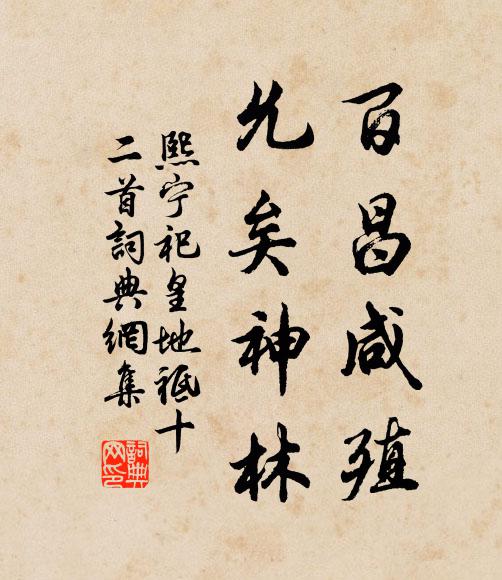 百昌咸殖
允矣神林
熙宁祀皇地祇十
二首詞典網集
詞典
网印